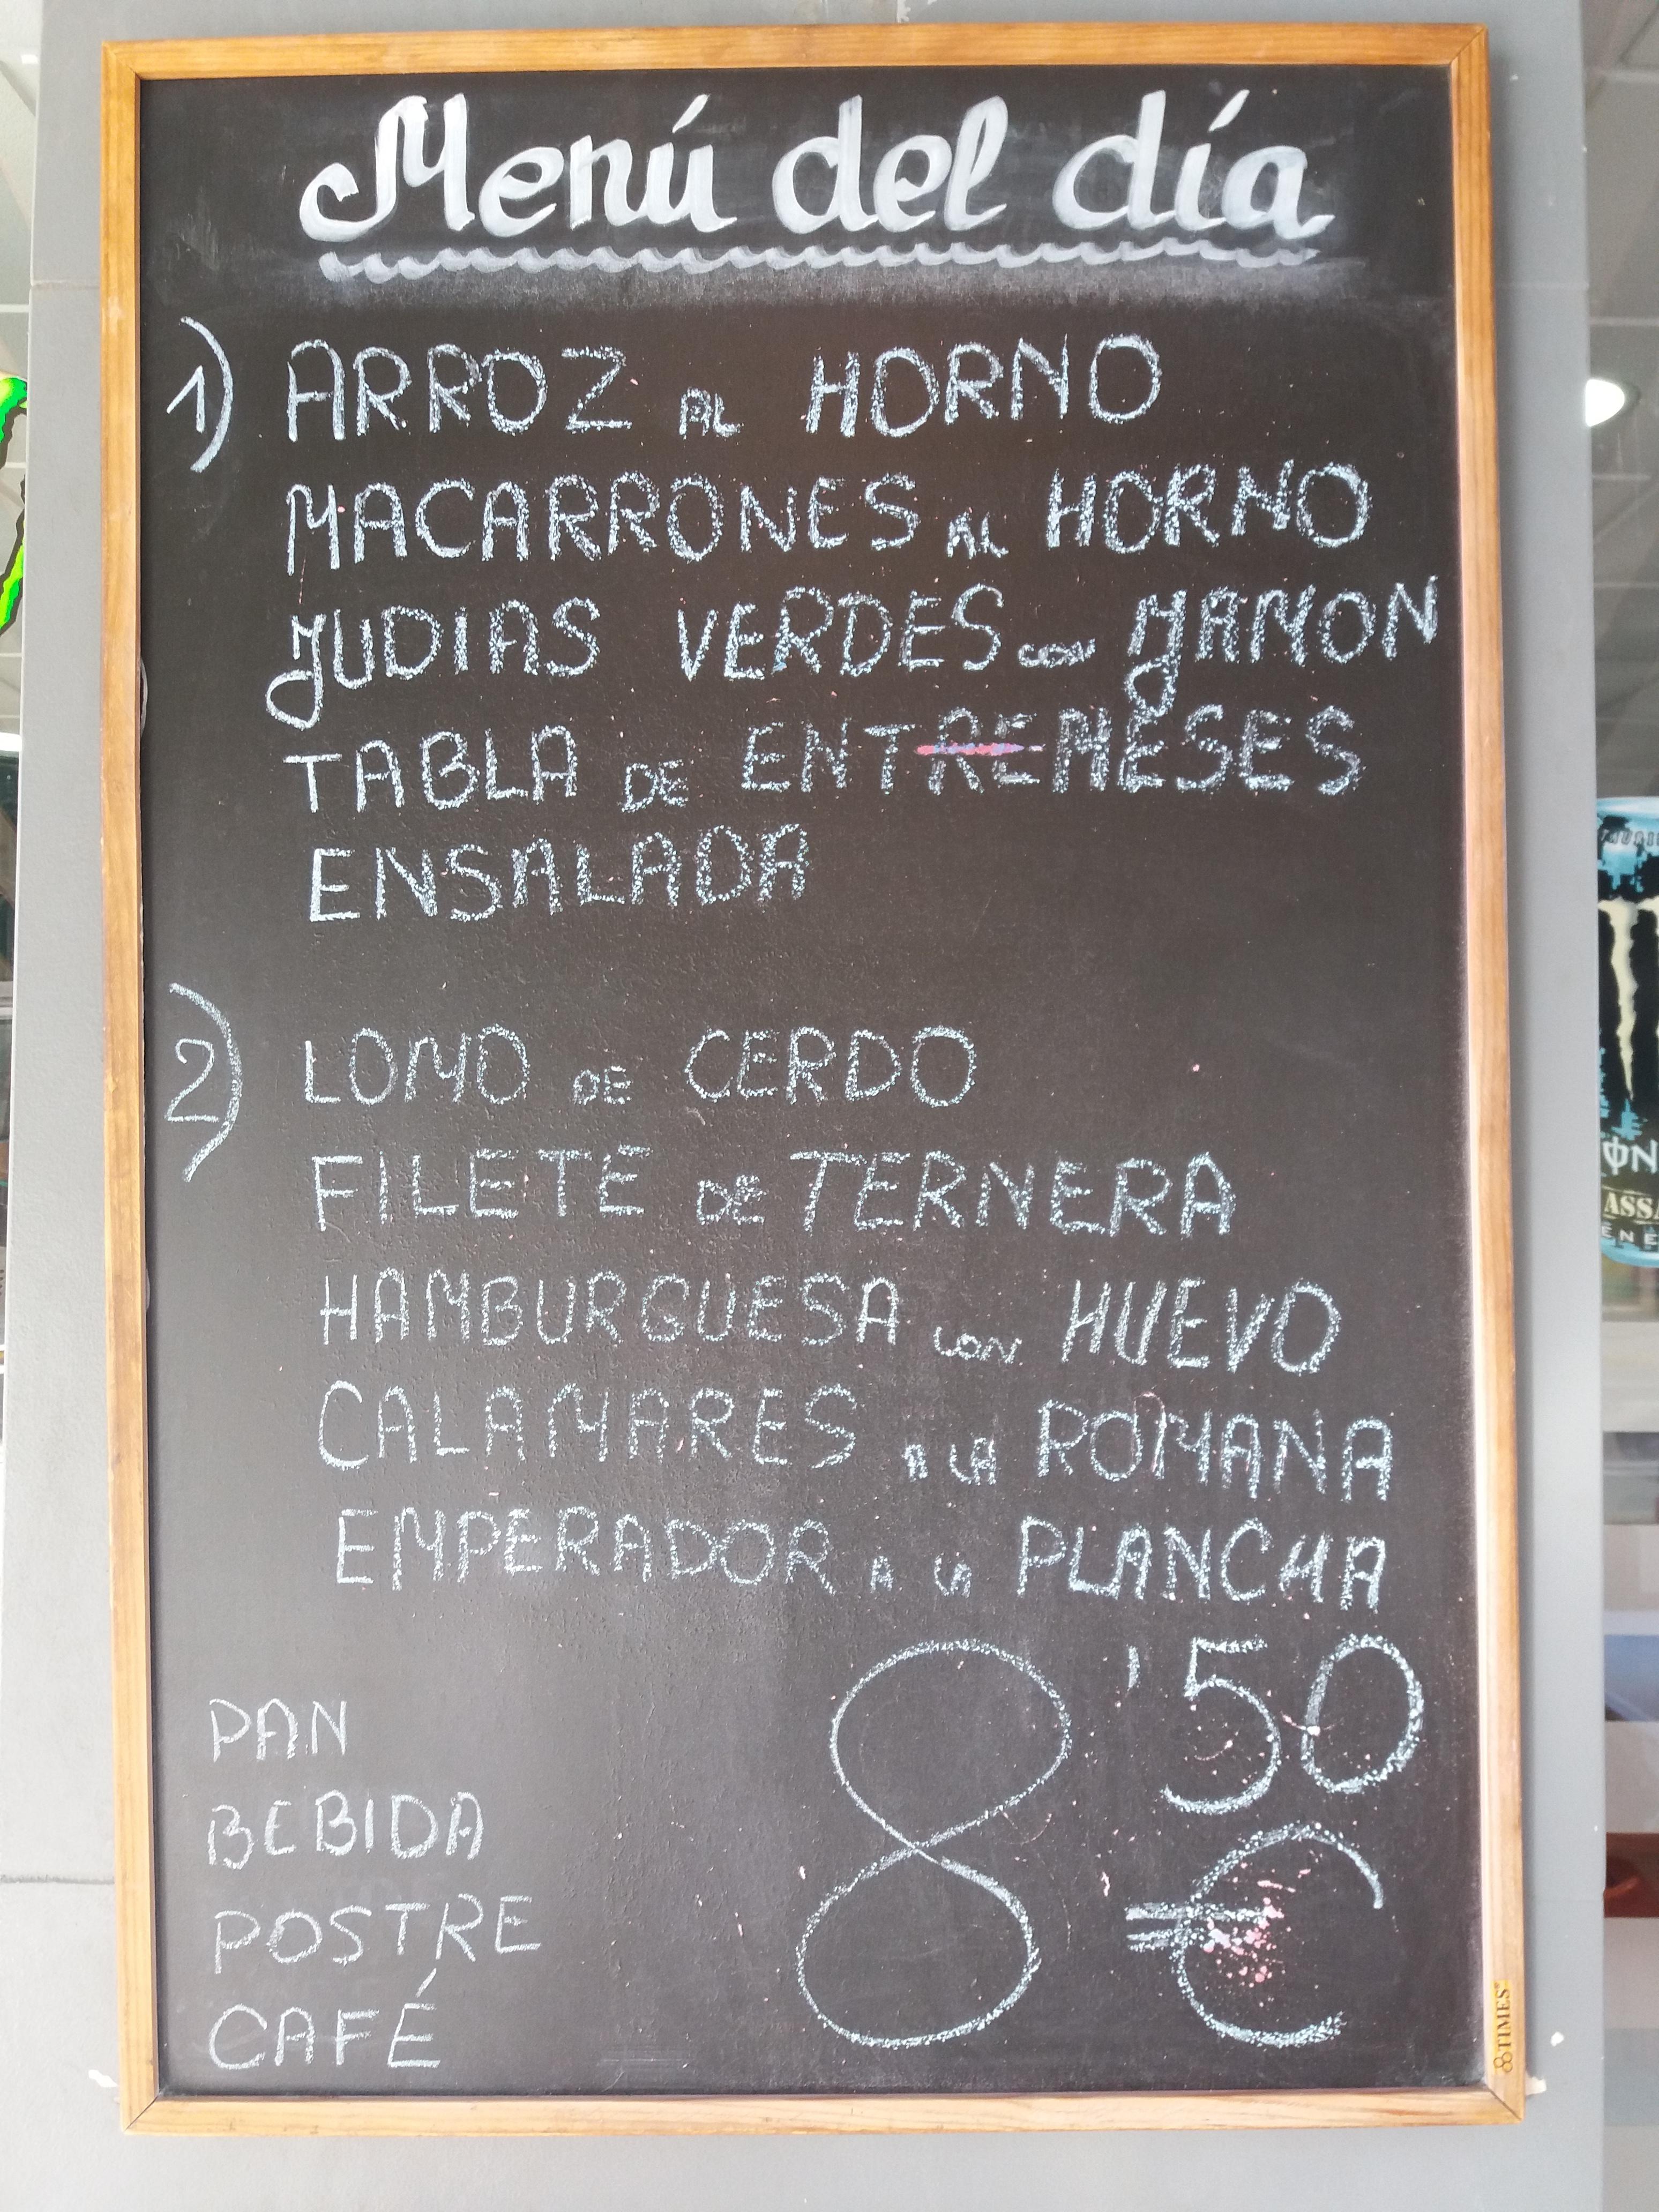 Menú del día
1) ARROZ AL HORNO
MACARRONES AL HORNO
JUDIAS VERDES CON JAMON
TABLA DE ENTREMESES
ENSALADA
2) LOMO DE CERDO
FILETE DE TERNERA
HAMBURGUESA CON HUEVO
CALAMARES A LA ROMANA
EMPERADOR A LA PLANCHA
PAN
BEBIDA
POSTRE
CAFÉ
8'50
€
TIMES
ASSA